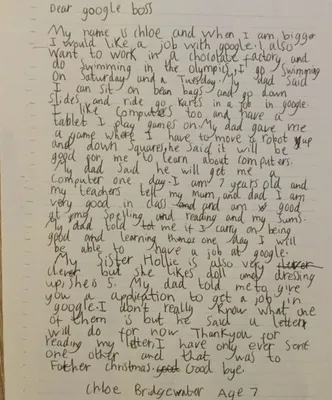 Dear google boss
My name is chloe and when I am bigger
I would like a job with google. I also
want to work in a chocolate factory and
do swimming in the olympics. I go swimming
on Saturday and a Tuesday. My dad said
I can sit on bean bags and go down
slides and ride go karts in a job in google.
I like computers too and have a
tablet I play games on. My dad gave me
a game where I have to move a robot up
and down squares, he said it will be
good for me to learn about computers.
My dad said he will get me a
computer one day. I am 7 years old and
my teachers tell my mum and dad I am
very good in class and am good
at my spelling and reading and my sums.
My dad told me if I carry on being
good and learning one day I will
be able to have a job at google.
My sister Hollie is also very
clever but she likes doll and dressing
up, she is 5. My dad told me to give
you a application to get a job in
google. I don't really know what one
of them is but he said a letter
will do for now. Thankyou for
reading my letter, I have only ever sent
one other and that was to
Father christmas. Good bye
Chloe Bridgewater Age 7